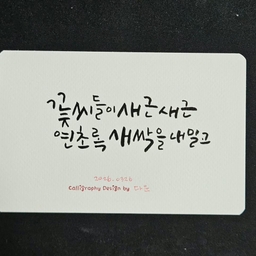 꽃씨들이 새근새근
연초록 새싹을 내밀고
Calligraphy Design by 다온